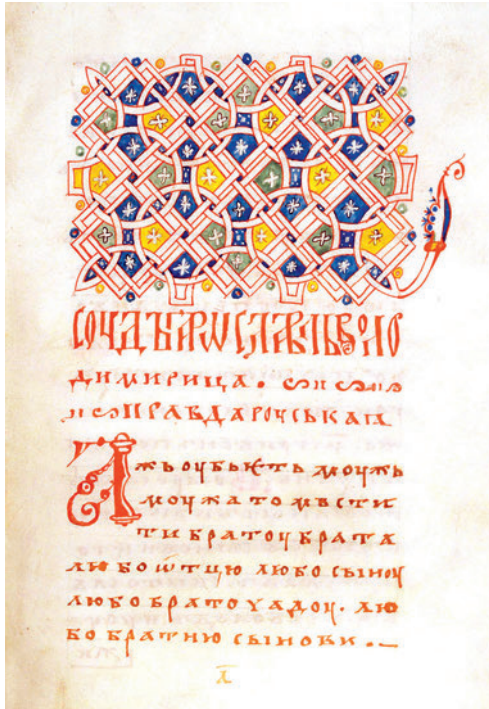 СОУДЪ ꙖРОСЛАВЛЬ ВОЛО
ДИМИРИЦА.
ПРАВДА РОУСЬСКАꙖ
Ажь оубьѥть моужь
моужа то мьсти
ти братоу брата
любо ѡтцю любо сꙑноу
любо братоучадоу. лю
бо братню сꙑнови.